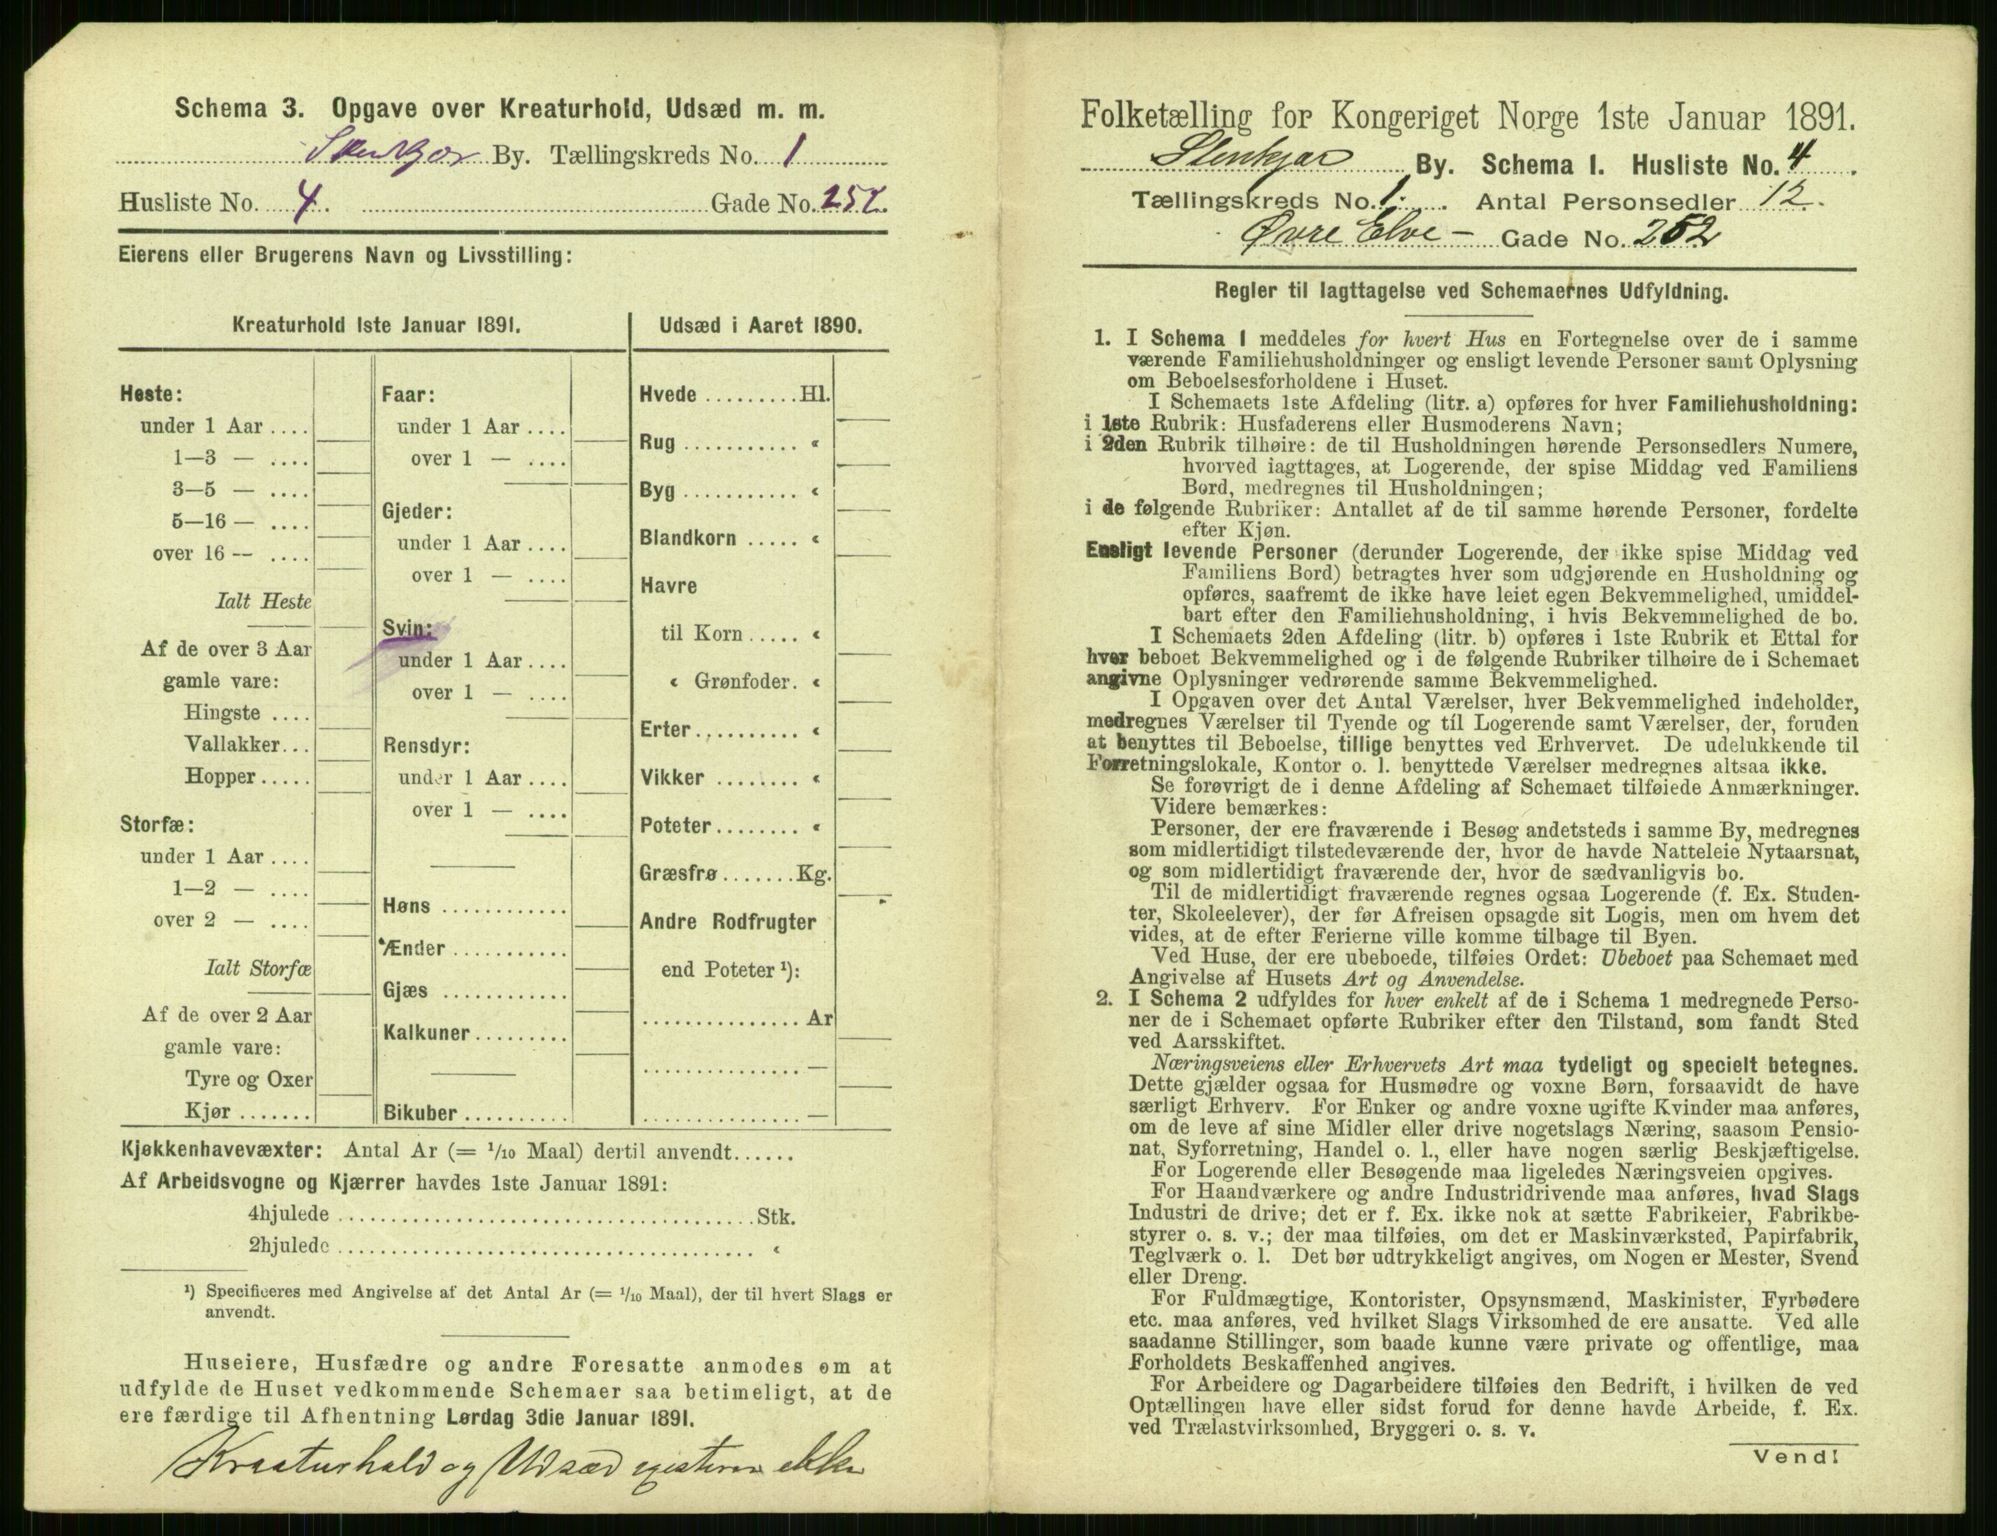 Schema 3. Opgave over Kreaturhold, Udsæd m. m.
Stenkjær By. Tællingskreds No. 1
Husliste No. 4. Gade No. 252.
Eierens eller Brugerens Navn og Livsstilling:
Kreaturhold 1ste Januar 1891.
Heste:
under 1 Aar ....
1—3 — ....
3—5 — ....
5—16 — ....
over 16 — ....
Ialt Heste
Af de over 3 Aar
gamle vare:
Hingste ....
Vallakker...
Hopper .....
Storfæ:
under 1 Aar ....
1—2 — ....
over 2 — ....
Ialt Storfæ
Af de over 2 Aar
gamle vare:
Tyre og Oxer
Kjør .......
Faar:
under 1 Aar ....
over 1 — ....
Gjeder:
under 1 Aar ....
over 1 — ....
Svin:
under 1 Aar ....
over 1 — ....
Rensdyr:
under 1 Aar ....
over 1 — ....
Høns ............
Ænder ...........
Gjæs ............
Kalkuner.........
Bikuber ..........
Udsæd i Aaret 1890.
Hvede .........Hl.
Rug ........... «
Byg ........... «
Blandkorn ..... «
Havre
til Korn ..... «
« Grønfoder. «
Erter.......... «
Vikker ........ «
Poteter........ «
Græsfrø.......Kg.
Andre Rodfrugter
end Poteter ¹):
............... Ar
............... —
............... —
Kjøkkenhavevæxter: Antal Ar (= 1/10 Maal) dertil anvendt......
Af Arbeidsvogne og Kjærrer havdes 1ste Januar 1891:
4hjulede ........................................Stk.
2hjulede ........................................ «
¹) Specificeres med Angivelse af det Antal Ar (= 1/10 Maal), der til hvert Slags er
anvendt.
Huseiere, Husfædre og andre Foresatte anmodes om at
udfylde de Huset vedkommende Schemaer saa betimeligt, at de
ere færdige til Afhentning Lørdag 3die Januar 1891.
Kreaturhold og Udsæd existerer ikke
Folketælling for Kongeriget Norge 1ste Januar 1891.
Stenkjær By. Schema 1. Husliste No. 4
Tællingskreds No. 1. Antal Personsedler 12.
Øvre Elve- Gade No. 252
Regler til Iagttagelse ved Schemaernes Udfyldning.
1. I Schema 1 meddeles for hvert Hus en Fortegnelse over de i samme
værende Familiehusholdninger og ensligt levende Personer samt Oplysning
om Beboelsesforholdene i Huset.
I Schemaets 1ste Afdeling (litr. a) opføres for hver Familiehusholdning:
i 1ste Rubrik: Husfaderens eller Husmoderens Navn;
i 2den Rubrik tilhøire: de til Husholdningen hørende Personsedlers Numere,
hvorved iagttages, at Logerende, der spise Middag ved Familiens
Bord, medregnes til Husholdningen;
i de følgende Rubriker: Antallet af de til samme hørende Personer, fordelte
efter Kjøn.
Ensligt levende Personer (derunder Logerende, der ikke spise Middag ved
Familiens Bord) betragtes hver som udgjørende en Husholdning og
opføres, saafremt de ikke have leiet egen Bekvemmelighed, umiddel-
bart efter den Familiehusholdning, i hvis Bekvemmelighed de bo.
I Schemaets 2den Afdeling (litr. b) opføres i 1ste Rubrik et Ettal for
hver beboet Bekvemmelighed og i de følgende Rubriker tilhøire de i Schemaet
angivne Oplysninger vedrørende samme Bekvemmelighed.
I Opgaven over det Antal Værelser, hver Bekvemmelighed indeholder,
medregnes Værelser til Tyende og til Logerende samt Værelser, der, foruden
at benyttes til Beboelse, tillige benyttes ved Erhvervet. De udelukkende til
Forretningslokale, Kontor o. l. benyttede Værelser medregnes altsaa ikke.
Se forøvrigt de i denne Afdeling af Schemaet tilføiede Anmærkninger.
Videre bemærkes:
Personer, der ere fraværende i Besøg andetsteds i samme By, medregnes
som midlertidigt tilstedeværende der, hvor de havde Natteleie Nytaarsnat,
og som midlertidigt fraværende der, hvor de sædvanligvis bo.
Til de midlertidigt fraværende regnes ogsaa Logerende (f. Ex. Studen-
ter, Skoleelever), der før Afreisen opsagde sit Logis, men om hvem det
vides, at de efter Ferierne ville komme tilbage til Byen.
Ved Huse, der ere ubeboede, tilføies Ordet: Ubeboet paa Schemaet med
Angivelse af Husets Art og Anvendelse.
2. I Schema 2 udfyldes for hver enkelt af de i Schema 1 medregnede Perso-
ner de i Schemaet opførte Rubriker efter den Tilstand, som fandt Sted
ved Aarsskiftet.
Næringsveiens eller Erhvervets Art maa tydeligt og specielt betegnes.
Dette gjælder ogsaa for Husmødre og voxne Børn, forsaavidt de have
særligt Erhverv. For Enker og andre voxne ugifte Kvinder maa anføres,
om de leve af sine Midler eller drive nogetslags Næring, saasom Pensio-
nat, Syforretning, Handel o. l., eller have nogen særlig Beskjæftigelse.
For Logerende eller Besøgende maa ligeledes Næringsveien opgives.
For Haandværkere og andre Industridrivende maa anføres, hvad Slags
Industri de drive; det er f. Ex. ikke nok at sætte Fabrikeier, Fabrikbe-
styrer o. s. v.; der maa tilføies, om det er Maskinværksted, Papirfabrik,
Teglværk o. l. Det bør udtrykkeligt angives, om Nogen er Mester, Svend
eller Dreng.
For Fuldmægtige, Kontorister, Opsynsmænd, Maskinister, Fyrbødere
etc. maa anføres, ved hvilket Slags Virksomhed de ere ansatte. Ved alle
saadanne Stillinger, som baade kunne være private og offentlige, maa
Forholdets Beskaffenhed angives.
For Arbeidere og Dagarbeidere tilføies den Bedrift, i hvilken de ved
Optællingen have eller sidst forud for denne havde Arbeide, f. Ex.
ved Trælastvirksomhed, Bryggeri o. s. v.
Vend!